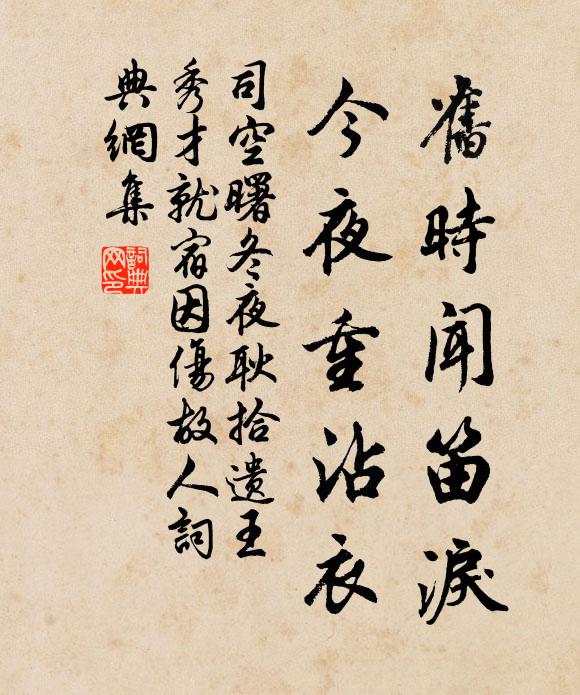 舊時聞笛淚
今夜重沾衣
司空曙冬夜耿拾遺王
秀才就宿因傷故人詞
典網集
詞典
网印